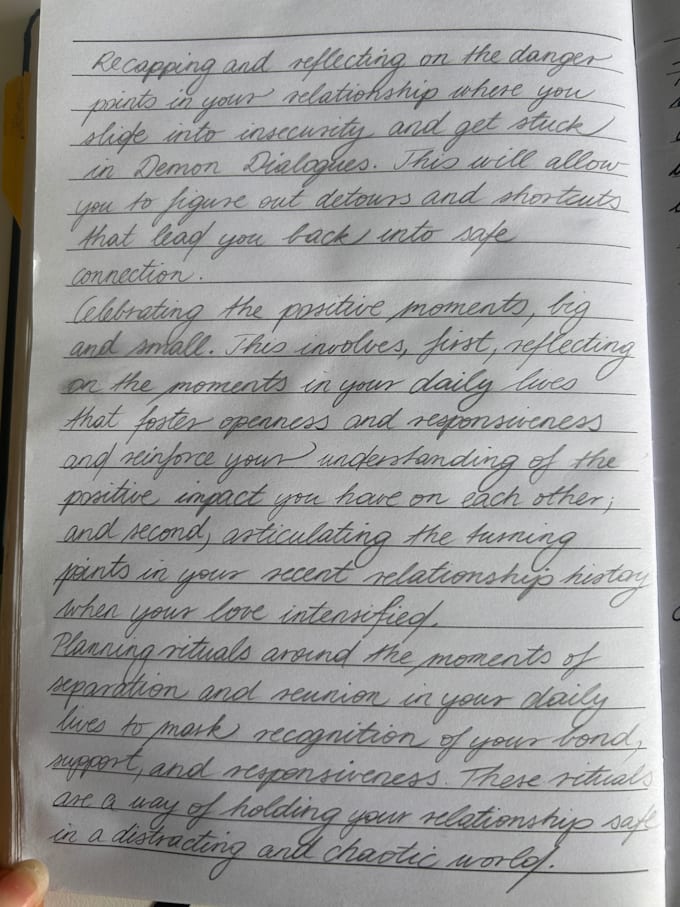 Recapping and reflecting on the danger
points in your relationship where you
slide into insecurity and get stuck
in Demon Dialogues. This will allow
you to figure out detours and shortcuts
that lead you back into safe
connection.
Celebrating the positive moments, big
and small. This involves, first, reflecting
on the moments in your daily lives
that foster openness and responsiveness
and reinforce your understanding of the
positive impact you have on each other;
and second, articulating the turning
points in your recent relationship history
when your love intensified.
Planning rituals around the moments of
separation and reunion in your daily
lives to mark recognition of your bond,
support, and responsiveness. These rituals
are a way of holding your relationship safe
in a distracting and chaotic world.